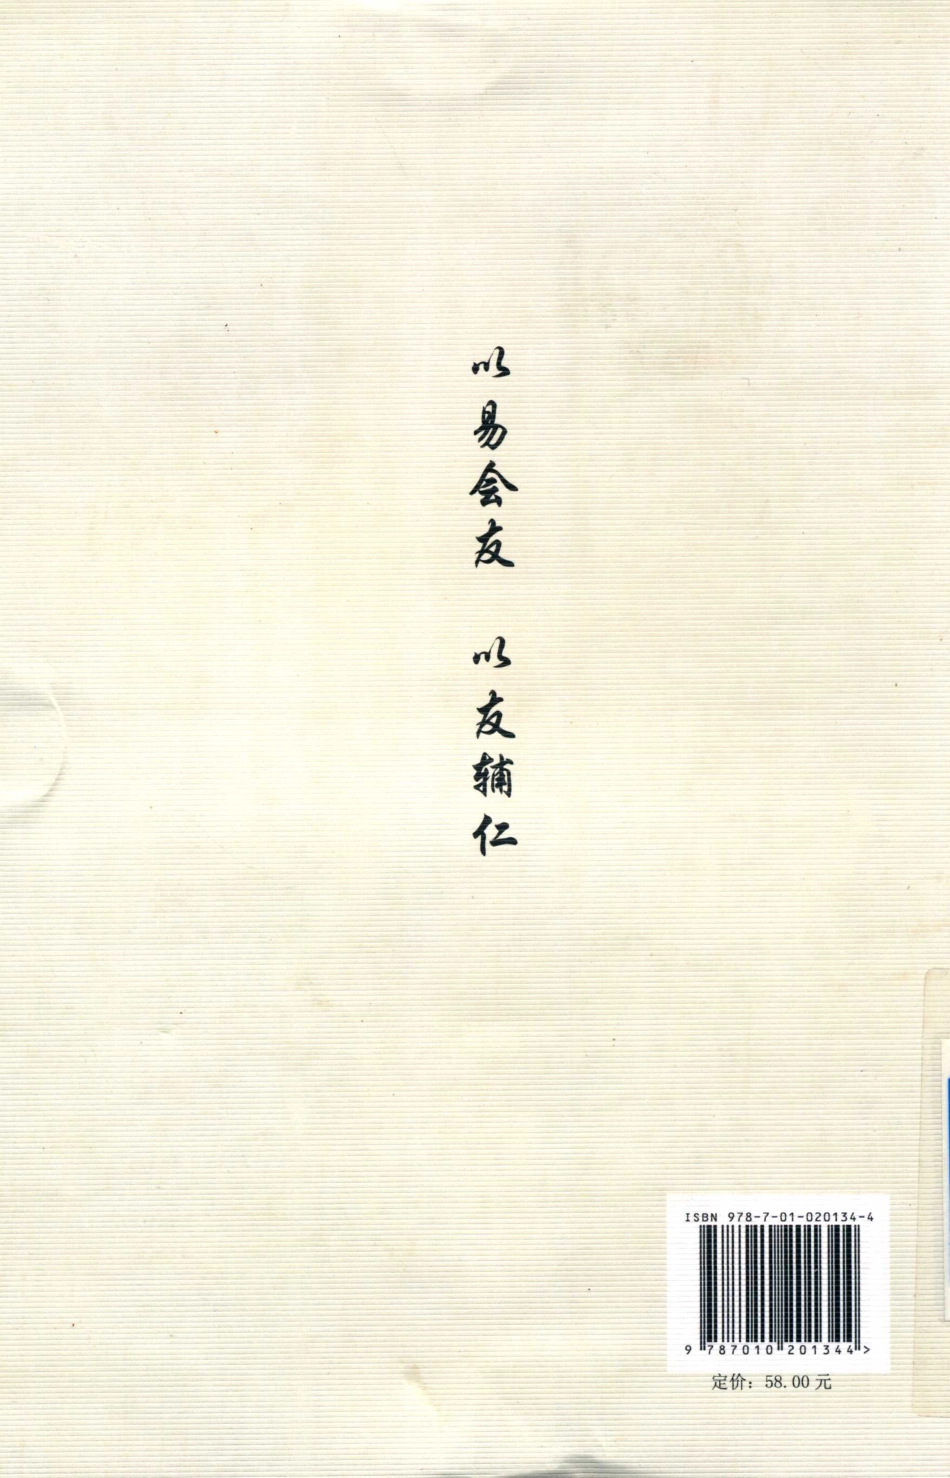 以易会友 以友辅仁
ISBN 978-7-01-020134-4
9 787010 201344 >
定价：58.00 元